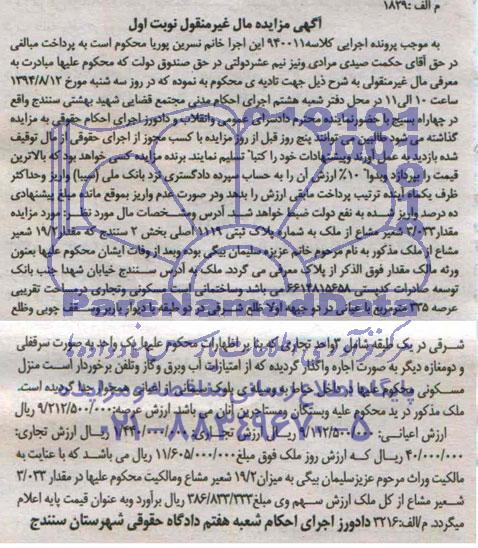 م الف: ۱۸۲۹
آگهی مزایده مال غیرمنقول نوبت اول
به موجب پرونده اجرایی کلاسه ۹۴۰۰۱۱ این اجرا خانم نسرین پوریا محکوم است به پرداخت مبالغی
در حق آقای حکمت صیدی مرادی ونیز نیم عشردولتی در حق صندوق دولت که محکوم علیها مبادرت به
معرفی مال غیرمنقولی به شرح ذیل جهت تادیه ی محکوم به نموده که در روز سه شنبه مورخ ۱۳۹۴/۸/۱۲
ساعت ۱۰ الی۱۱ در محل دفتر شعبه هشتم اجرای احکام مدنی مجتمع قضایی شهید بهشتی سنندج واقع
در چهارراه بسیج با حضورنماینده محترم دادسرای عمومی وانقلاب و دادورز اجرای احکام حقوقی به مزایده
گذاشته می شود طالبین می توانند پنج روز قبل از روز مزایده با کسب مجوز از اجرای حقوقی از مال توقیف
شده بازدید به عمل آورند وپیشنهادات خود را کتبا" تسلیم نمایند. برنده مزایده کسی خواهد بود که بالاترین
قیمت را بپردازد وبدوا" ۱۰٪ ارزش آن را به حساب سپرده دادگستری نزد بانک ملی (سیبا) واریز وحداکثر
ظرف یکماه آینده ترتیب پرداخت مابقی ارزش را بدهد ودر صورت عدم واریز بموقع مانده مبلغ پیشنهادی
ده درصد واریز شده به نفع دولت ضبط خواهد شد. آدرس ومشخصات مال مورد نظر: مورد مزایده
مقدار ۳/۰۳۳ شعیر مشاع از ملک به شماره پلاک ثبتی ۱۱۱۹ اصلی بخش ۲ سنندج که مقدار ۱۹/۲ شعیر
مشاع از ملک مذکور به نام مرحوم خانم عزیزه سلیمان بیگی بوده وبعد از وفات ایشان محکوم علیها بعنون
ورثه مالک مقدار فوق الذکر از پلاک معرفی می گردد. ملک به آدرس سنندج خیابان شهدا جنب بانک
توسعه صادرات کدپستی ۶۶۱۳۸۱۵۶۵۸ می باشد وساختمانی است مسکونی وتجاری درمساحت تقریبی
عرصه ۳۳۵ مترمربع با عیانی در دو جبهه اولا ضلع شرقی در دو طبقه با دیوار باربر وسقف چوبی وضلع
شرقی در یک طبقه شامل ۳واحد تجاری که بنا بر اظهارات محکوم علیها یک واحد به صورت سرقفلی
و دومغازه دیگر به صورت اجاره واگذار گردیده که از امتیازات آب وبرق وگاز وتلفن برخوردار است منزل
مسکونی محکوم علیها از داخل حیاط به وسیله ی بلوک سیمانی از اعیانی همجوار جدا گردیده است.
ملک مذکور در ید محکوم علیه وبستگان ومستاجرین آنان می باشد. ارزش عرصه: ۹/۲۱۲/۵۰۰/۰۰۰ ریال
ارزش اعیانی: ۹/۱۹۲/۵۰۰/۰۰۰ ریال ارزش تجاری: ۱/۴۴۰/۰۰۰/۰۰۰ ریال ارزش تجاری:
۴۰/۰۰۰/۰۰۰ ریال که ارزش روز ملک فوق مبلغ ۱۱/۶۰۵/۰۰۰/۰۰۰ ریال می باشد که با عنایت به
مالکیت وراث مرحوم عزیزسلیمان بیگی به میزان ۱۹/۲ شعیر مشاع ومالکیت محکوم علیها در مقدار ۳/۰۳۳
شعیر مشاع از کل ملک ارزش سهم وی مبلغ ۳۸۶/۸۳۳/۳۳۳ ریال برآورد وبه عنوان قیمت پایه اعلام
میگردد. م/الف: ۳۲۱۶ دادورز اجرای احکام شعبه هفتم دادگاه حقوقی شهرستان سنندج
ParsNamadData
۰۲۱-۸۸۳۴۹۶۷۰-۵